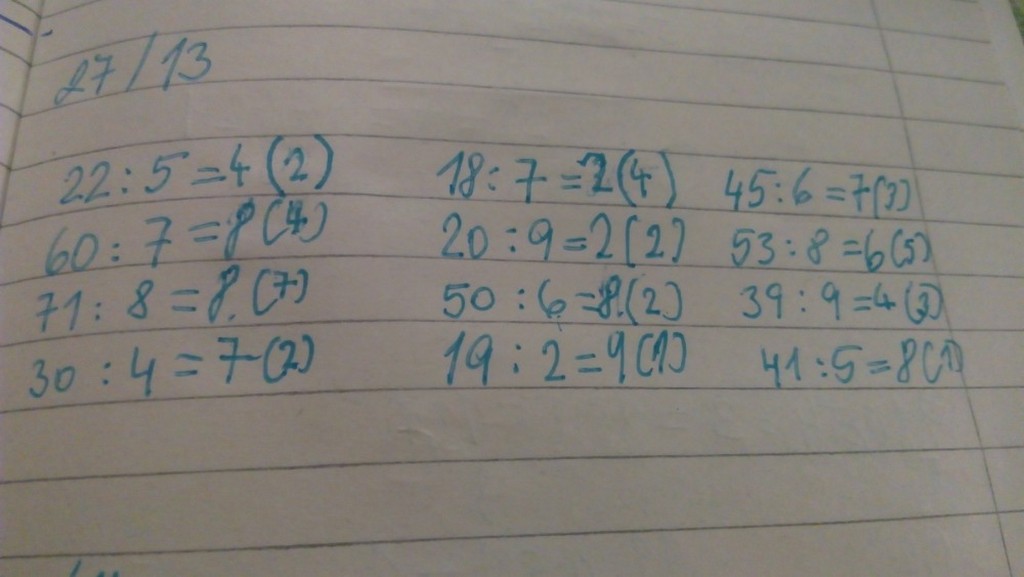 27/13
22:5=4(2) 18:7=2(4) 45:6=7(3)
60:7=8(4) 20:9=2(2) 53:8=6(5)
71:8=8.(7) 50:6=8.(2) 39:9=4(3)
30:4=7(2) 19:2=9(1) 41:5=8(1)